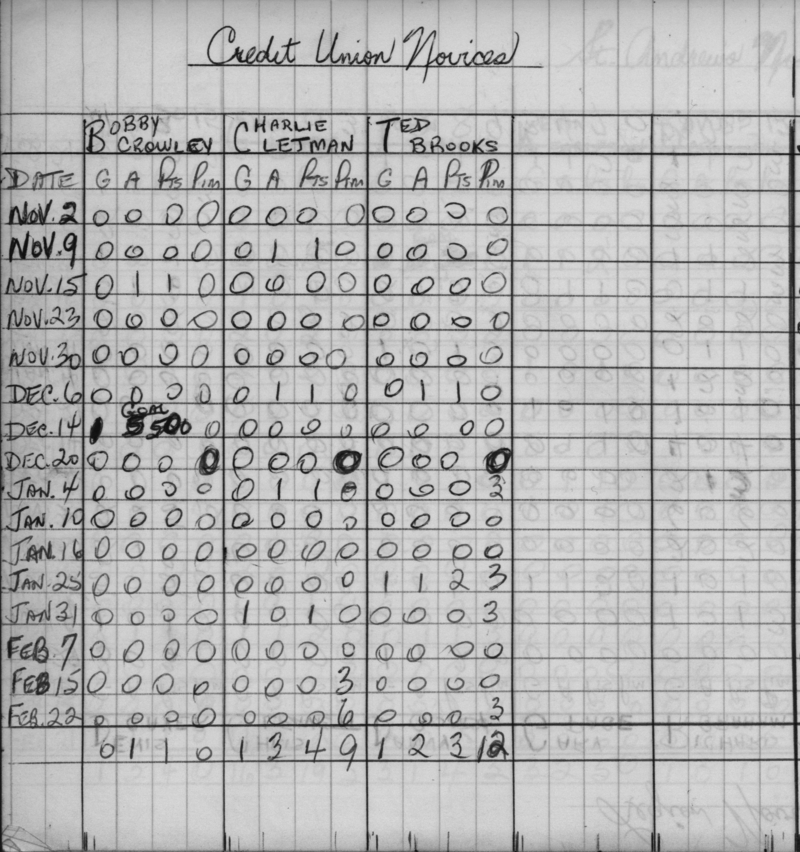 Credit Union Novices
BOBBY CROWLEY CHARLIE LETMAN TED BROOKS
DATE G A Pts Pim G A Pts Pim G A Pts Pim
NOV. 2 0 0 0 0 0 0 0 0 0 0 0 0
NOV. 9 0 0 0 0 0 1 1 0 0 0 0 0
NOV. 15 0 1 1 0 0 0 0 0 0 0 0 0
NOV. 23 0 0 0 0 0 0 0 0 0 0 0 0
NOV. 30 0 0 0 0 0 0 0 0 0 0 0 0
DEC. 6 0 0 0 0 0 1 1 0 0 1 1 0
GOAL
DEC. 14 0 0 0 0 0 0 0 0 0
DEC. 20 0 0 0 0 0 0 0 0 0 0 0 0
JAN. 4 0 0 0 0 0 1 1 0 0 0 0 3
JAN. 10 0 0 0 0 0 0 0 0 0 0 0 0
JAN. 16 0 0 0 0 0 0 0 0 0 0 0 0
JAN. 25 0 0 0 0 0 0 0 0 1 1 2 3
JAN 31 0 0 0 0 1 0 1 0 0 0 0 3
FEB. 7 0 0 0 0 0 0 0 0 0 0 0 0
FEB 15 0 0 0 0 0 0 0 3 0 0 0 0
FEB. 22 0 0 0 0 0 0 0 6 0 0 0 3
0 1 1 0 1 3 4 9 1 2 3 12